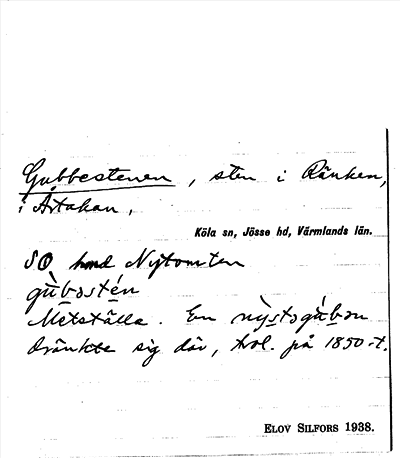 Gubbestenen, sten i Ränken,
i Årtakan.
Köla sn, Jösse hd, Värmlands län.
SO Nytomten
gùbostén
Metställe. En
dränkte sig där, trol. på 1850-t.
ELOV SILFORS 1938.